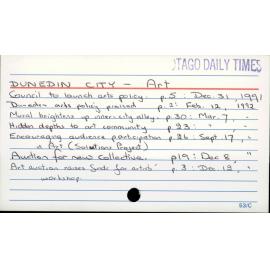 OTAGO DAILY TIMES
DUNEDIN CITY - Art
Council to launch arts policy. p.5 : Dec. 31, 1991
Dunedin arts policy praised p.2: Feb. 12, 1992
Mural brightens up inner-city alley. p.30: Mar. 7, "
Hidden depths to art community p.23: " "
Encouraging audience participation p.26 Sept 17, "
in Art (Solutions Project)
Auction for new Collective. p19: Dec 8, "
Art auction raises funds for artists' p.3: Dec 12, "
workshop.
53/C